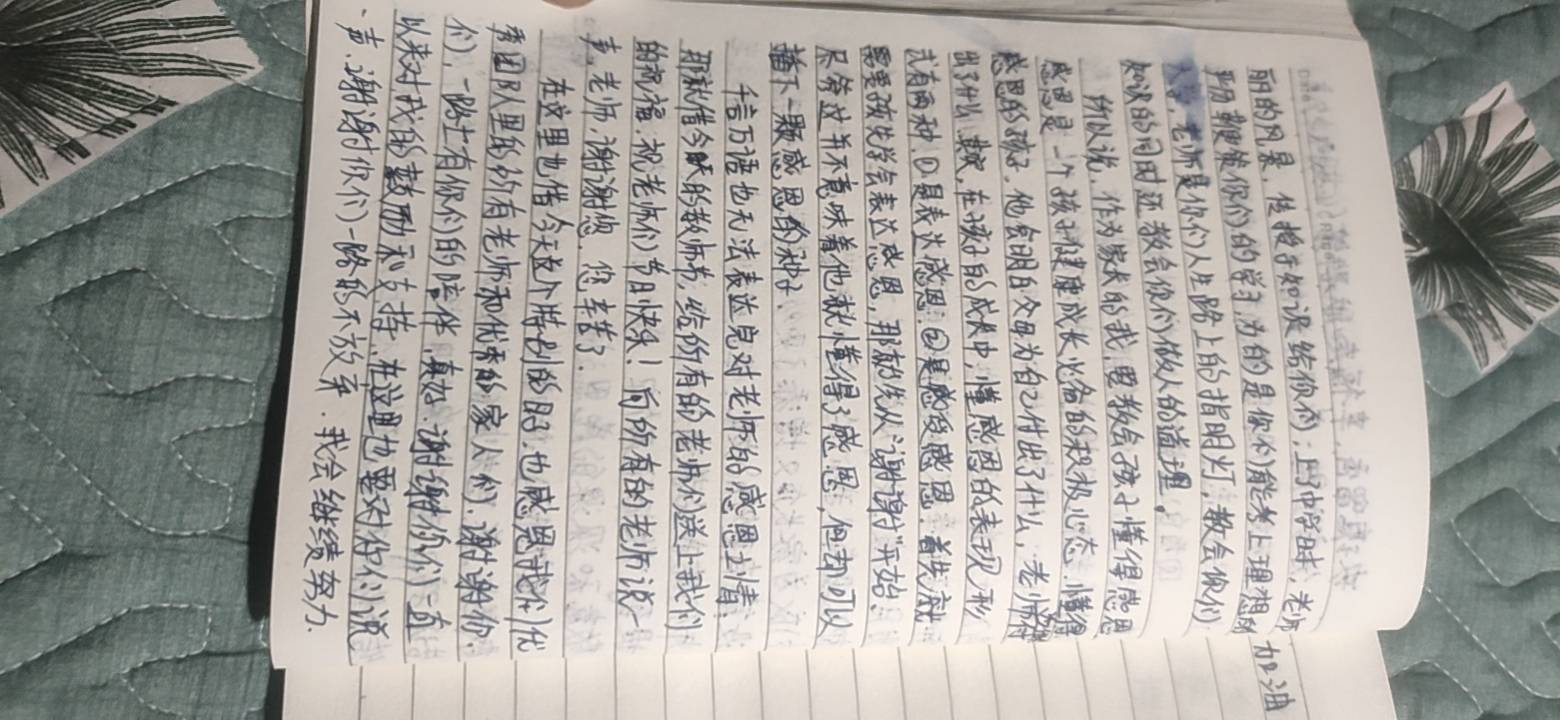 丽的风景，传授予知识给你们；上了中学时，老师
鞭策你们的学习，为的是你们能考上理想的
大学，老师是你们人生路上的指明灯，教会你们
知识的同时还教会你们做人的道理。
所以说，作为家长的我，要教会孩子懂得感恩
感恩是一个孩子健康成长必备的积极心态，懂得
感恩的孩子，他会明白父母为自己付出了什么，老师付
出了什么，在孩子的成长中，懂感恩的表现形
式有两种①是表达感恩；②是感受感恩．首先就
需要孩先学会表达感恩，那就先从“谢谢”开始．
尽管这并不意味着他就懂得了感恩，但却可以
播下一颗感恩的种子．
千言万语也无法表达完对老师的感恩之情，
那就借今天的教师节，给所有的老师们送上我们
的祝福．祝老师们节日快乐！向所有的老师说一
声，老师，谢谢您，您辛苦了．
在这里也借今天这个特别的日子，也感恩我们优
秀团队里的所有老师和优秀的家人们．谢谢你
们，一路上有你们的陪伴，真好，谢谢你们一直
以来对我的鼓励和支持，在这里也要对你们说
一声，谢谢你们一路的不放弃．我会继续努力．
加油